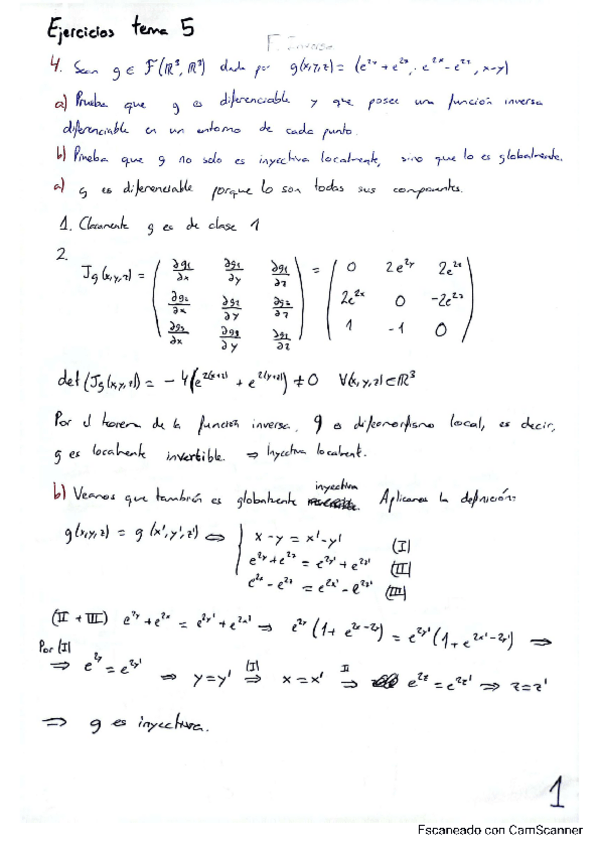 Ejercicios tema 5
F. Inversa
4. Sean g ∈ F(ℝ³, ℝ³) dada por g(x,y,z) = (e^{2y} + e^{2z}, e^{2x} - e^{2z}, x-y)
a) Prueba que g es diferenciable y que posee una función inversa
diferenciable en un entorno de cada punto.
b) Prueba que g no solo es inyectiva localmente, sino que lo es globalmente.
a) g es diferenciable porque lo son todas sus componentes.
1. Claramente g es de clase 1
2.
Jg(x,y,z) = ( ∂g₁/∂x ∂g₁/∂y ∂g₁/∂z ) = ( 0 2e^{2y} 2e^{2z} )
( ∂g₂/∂x ∂g₂/∂y ∂g₂/∂z ) ( 2e^{2x} 0 -2e^{2z} )
( ∂g₃/∂x ∂g₃/∂y ∂g₃/∂z ) ( 1 -1 0 )
det(Jg(x,y,z)) = -4(e^{2(x+z)} + e^{2(y+z)}) ≠ 0 ∀(x,y,z) ∈ ℝ³
Por el teorema de la función inversa, g es difeomorfismo local, es decir,
g es localmente invertible. ⇒ Inyectiva localment.
b) Veamos que también es globalmente inyectiva. Aplicamos la definición:
g(x,y,z) = g(x',y',z') ⇔ { x-y = x'-y' (I)
e^{2y} + e^{2z} = e^{2y'} + e^{2z'} (II)
e^{2x} - e^{2z} = e^{2x'} - e^{2z'} (III)
(II + III) e^{2y} + e^{2x} = e^{2y'} + e^{2x'} ⇒ e^{2y}(1 + e^{2x-2y}) = e^{2y'}(1 + e^{2x'-2y'}) ⇒
Por (I)
⇒ e^{2y} = e^{2y'} ⇒ y = y' ⇒(I) x = x' ⇒(II) e^{2z} = e^{2z'} ⇒ z = z'
⇒ g es inyectiva.
1
Escaneado con CamScanner